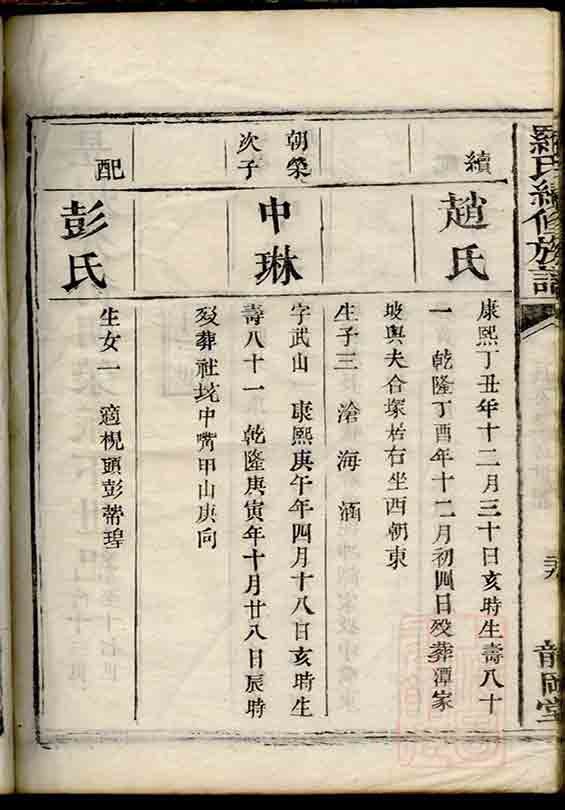 羅氏續修族譜
龍岡堂
續
趙氏
康熙丁丑年十二月三十日亥時生壽八十
一 乾隆丁酉年十二月初四日殁葬潭家
坡與夫合塚居右坐西朝東
生子三 滄 海 涵
朝榮
次子
中琳
字武山 康熙庚午年四月十八日亥時生
壽八十一 乾隆庚寅年十月廿八日辰時
殁葬社坑中嘴甲山庚向
配
彭氏
生女一 適枧頭彭